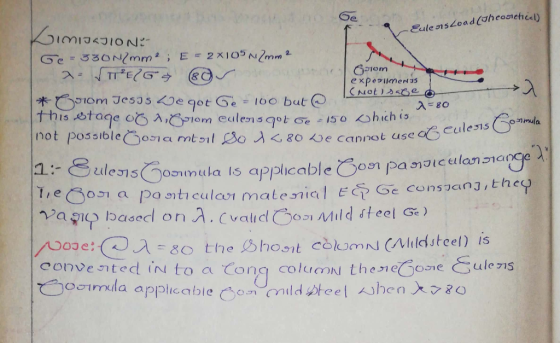 Limitation:-
σe = 330N/mm² ; E = 2×10⁵N/mm²
λ = √π²E/σ → 80 ✓
σe
Eulers Load (Theoretical)
From
experiments
(Not) is σe
λ
λ=80
* From Tests we got σe = 100 but @
this stage of λ, from eulers got σe = 150 which is
not possible for a mtrl So λ < 80 we cannot use of eulers formula
1:- Eulers formula is applicable for particular range "λ"
i,e for a particular material E & σe constant, they
vary based on λ. (valid for Mild steel σe)
Note:- @ λ=80 the short column (Mild steel) is
converted in to a long column therefore Eulers
formula applicable for mild steel when λ > 80